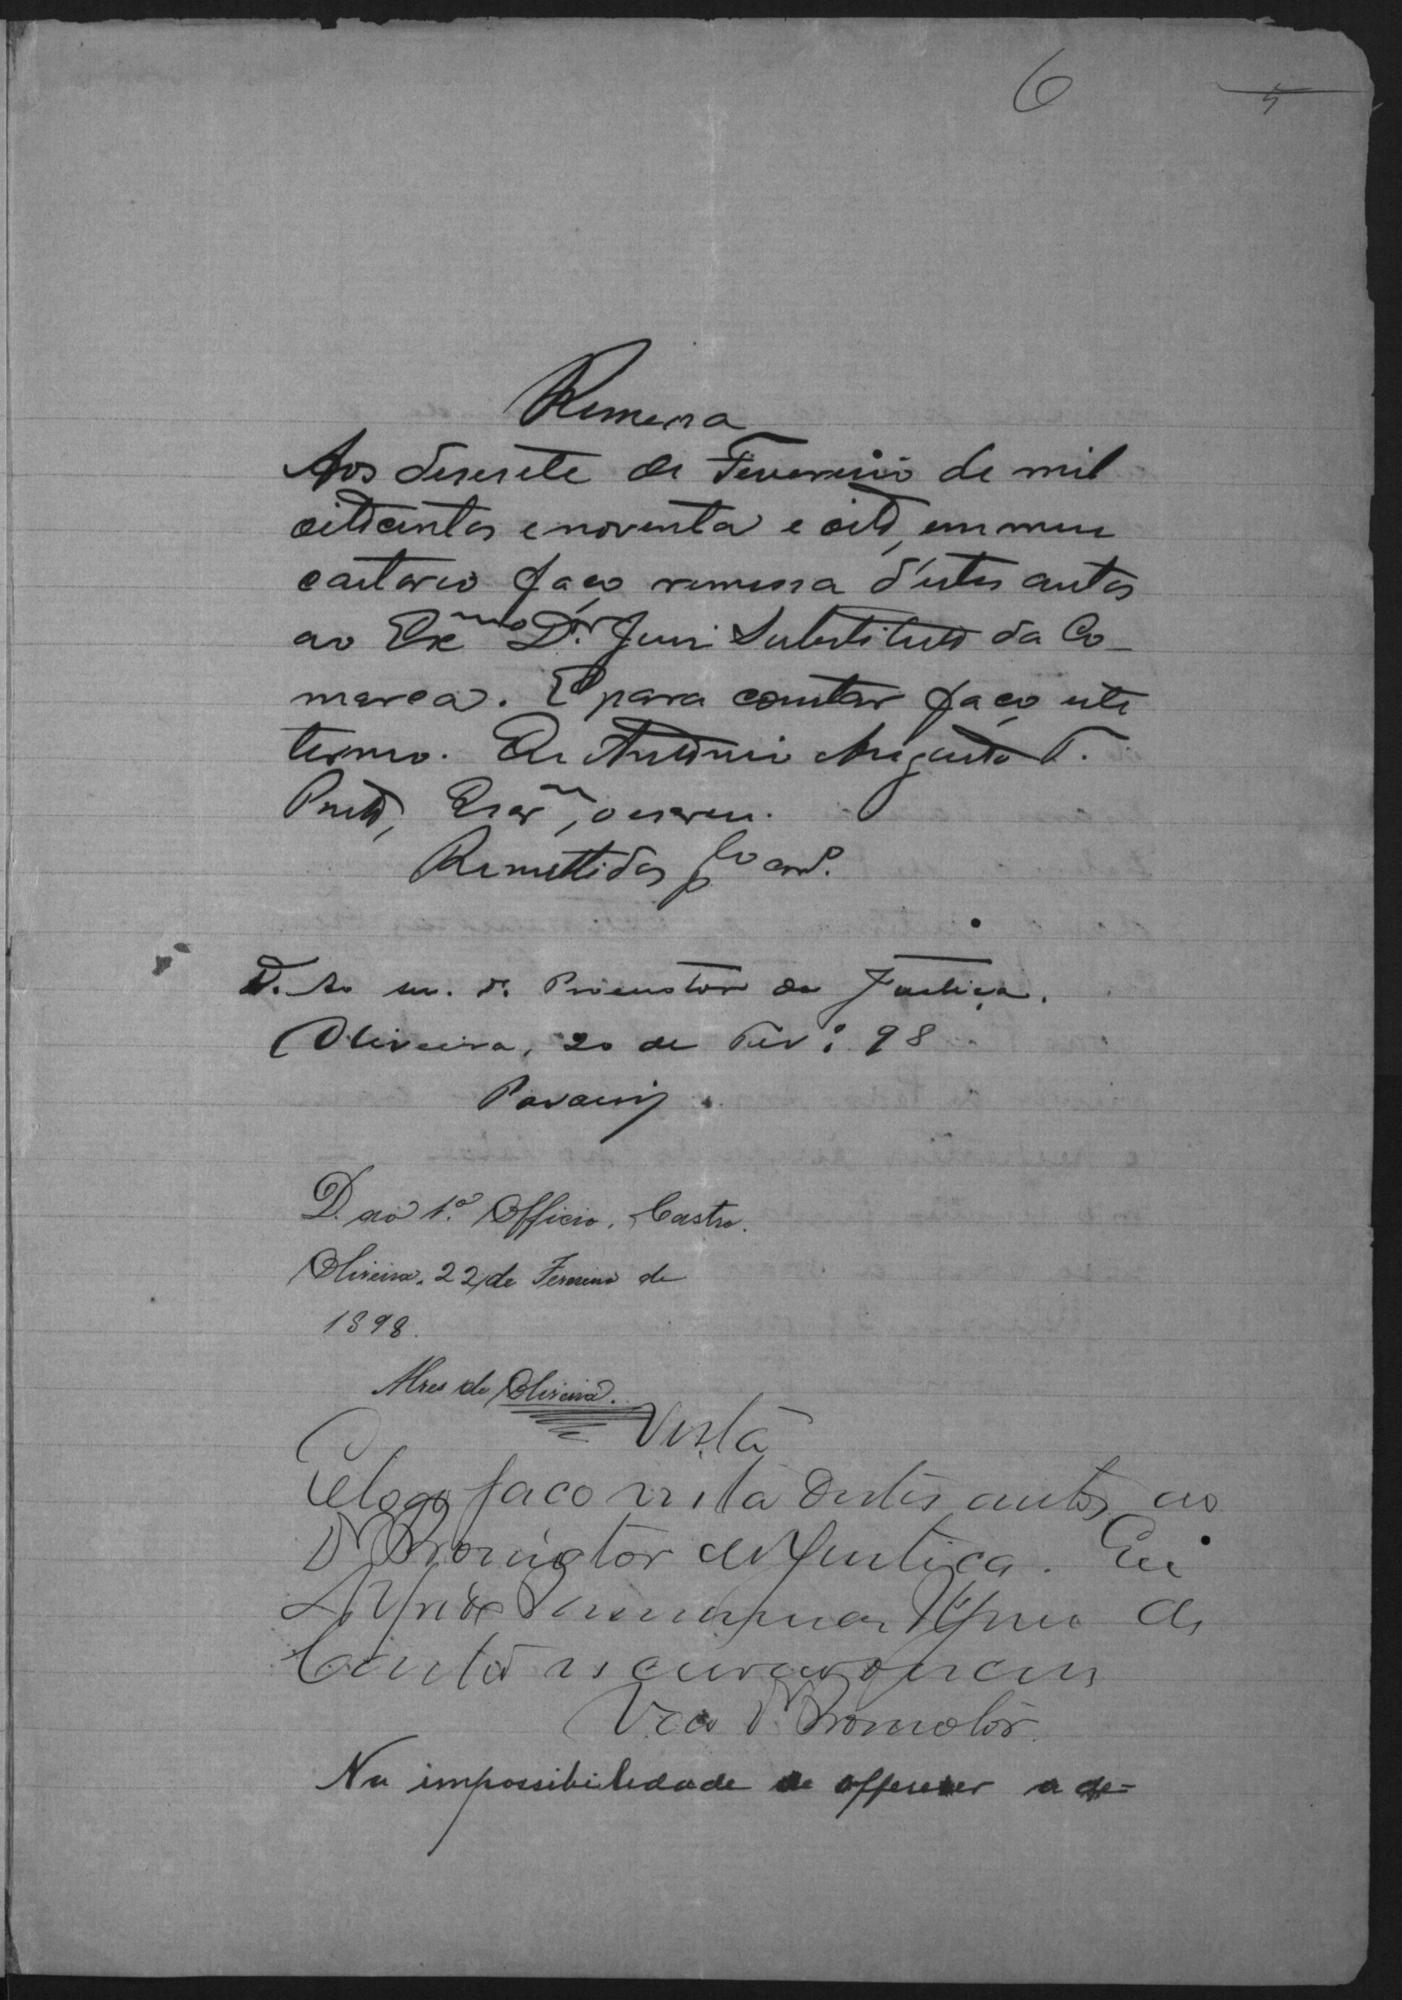 6 5
Remessa
Aos desesete de Fevereiro de mil
oitocentos e noventa e oito, em meu
cartorio faço remessa d'estes autos
ao Exmo Dr. Juiz Substituto da Co-
marca. E para constar faço este
termo. Eu Antonio Augusto T.
Escram, o escrevi.
Remettidos
D. Ao sr. dr. Promotor da Justiça.
Oliveira, 20 de Fev.º 98
D. ao 1.º Officio. Castro.
Oliveira. 22 de Fevereiro de
1898.
Alves de Oliveira.
Vista
E logo faço vista destes autos ao
Dr Promotor de Justiça. Eu
de
Castro escrivão o escrevi
Vão Dr Promotor
Na impossibilidade de offerecer a de=